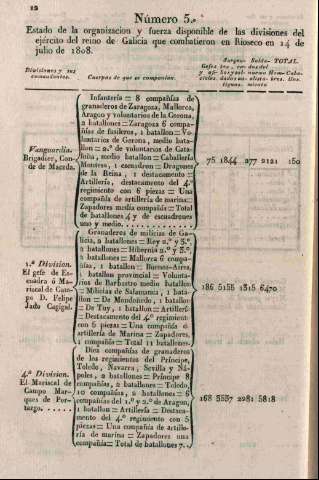 12
Número 5.º
Estado de la organizacion y fuerza disponible de las divisiones del
ejército del reino de Galicia que combatieron en Rioseco en 14 de
julio de 1808.
Divisiones y sus comandantes.
Cuerpos de que se componian.
TOTAL.
Vanguardia.
Brigadier, Con-
de de Maceda.
Infantería = 8 compañías de
granaderos de Zaragoza, Mallorca,
Aragon y voluntarios de la Corona,
2 batallones = Zaragoza 6 compa-
ñías de fusileros, 1 batallon = Vo-
luntarios de Gerona, medio bata-
llon = 2.º de voluntarios de Cata-
luña, medio batallon = Caballería
Montesa, 1 escuadron = Dragones
de la Reina, 1 destacamento =
Artillería, destacamento del 4.º
regimiento con 6 piezas = Una
compañía de artillería de marina =
Zapadores media compañía = Total
de batallones 4 y de escuadrones
uno y medio.
75 1844 277 2121 150
1.ª Division.
El gefe de Es-
cuadra ó Ma-
riscal de Cam-
po D. Felipe
Jado Cagigal.
Granaderos de milicias de Ga-
licia, 2 batallones = Rey 2.º y 3.º,
2 batallones = Hibernia 2.º y 3.º,
2 batallones = Mallorca 6 compa-
ñías, 1 batallon = Buenos-Aires,
1 batallon provincial = Volunta-
rios de Barbastro medio batallon
= Milicias de Salamanca, 1 bata-
llon = De Mondoñedo, 1 batallon
= De Tuy, 1 batallon = Artillería =
Destacamento del 4.º regimiento
con 5 piezas = Una compañía de
artillería de Marina = Zapadores,
1 compañía = Total 11 batallones.
186 5155 1315 6470
4.ª Division.
El Mariscal de
Campo Mar-
ques de Por-
tazgo.
Diez compañías de granaderos
de los regimientos del Príncipe,
Toledo, Navarra, Sevilla y Ná-
poles, 2 batallones = Príncipe 8
compañías, 2 batallones = Toledo,
10 compañías, 2 batallones = 6
compañías del 1.º y 2.º de Aragon,
1 batallon = Artillería = Destaca-
mento del 4.º regimiento con 5
piezas = Una compañía de artille-
ría de marina = Zapadores una
compañía = Total de batallones 7.
168 3537 2281 5818